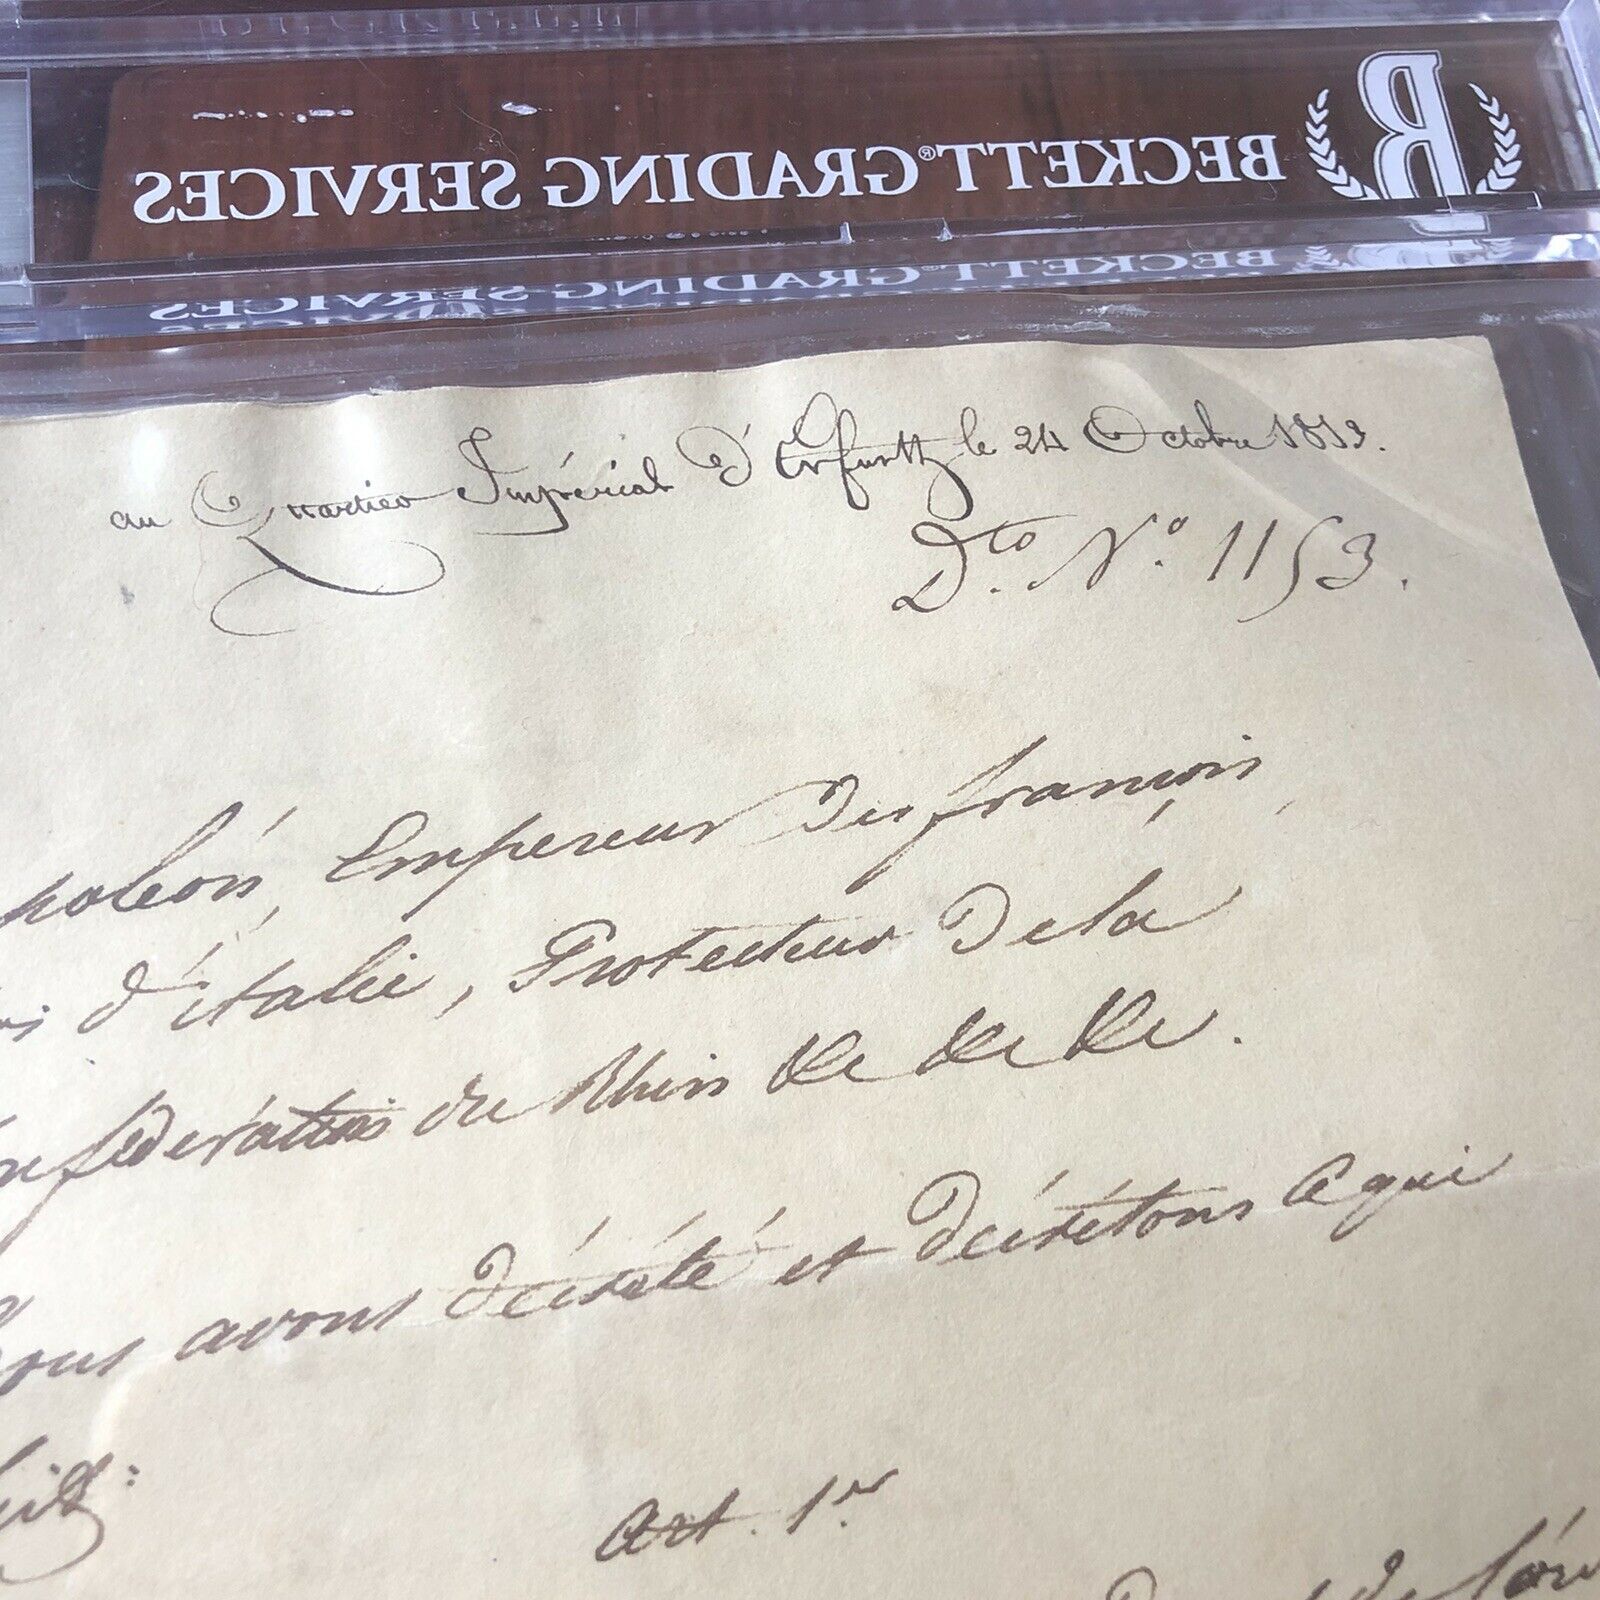 BECKETT® GRADING SERVICES
au Quartier Impérial d'Erfurth le 24 Octobre 1813.
Dto. No. 1153.
poléon, Empereur des françois,
d'italie, Protecteur de la
nfédération du Rhin &c &c &c.
ous avons décrété et décrétons ce qui
uit:
Art. 1er